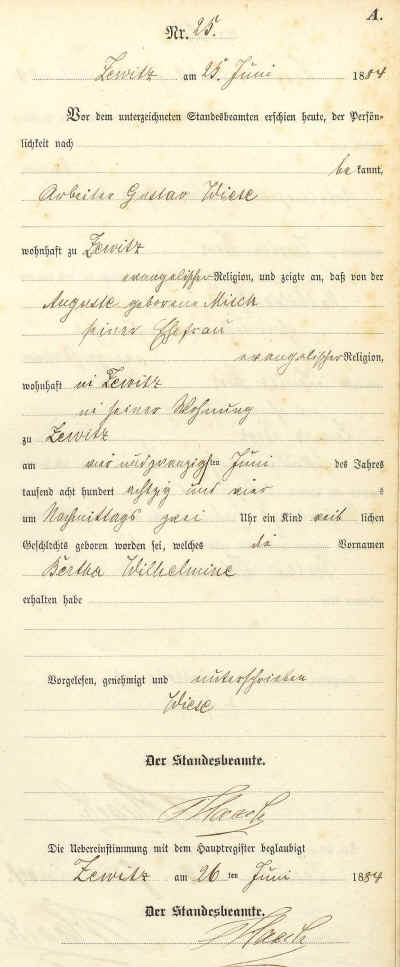 A.
Nr. 25.
Zewitz am 25. Juni 1884
Vor dem unterzeichneten Standesbeamten erschien heute, der Persön-
lichkeit nach
be kannt,
Arbeiter Gustav Wiese
wohnhaft zu Zewitz
evangelischer Religion, und zeigte an, daß von der
Auguste geborene Misch
seiner Ehefrau
evangelischer Religion,
wohnhaft in Zewitz
in seiner Wohnung
zu Zewitz
am vier und zwanzigsten Juni des Jahres
tausend acht hundert achtzig und vier
um Nachmittags zwei Uhr ein Kind weib lichen
Geschlechts geboren worden sei, welches die Vornamen
Bertha Wilhelmine
erhalten habe
Vorgelesen, genehmigt und unterschrieben
Wiese
Der Standesbeamte.
Die Uebereinstimmung mit dem Hauptregister beglaubigt
Zewitz am 26 ten Juni 1884
Der Standesbeamte.